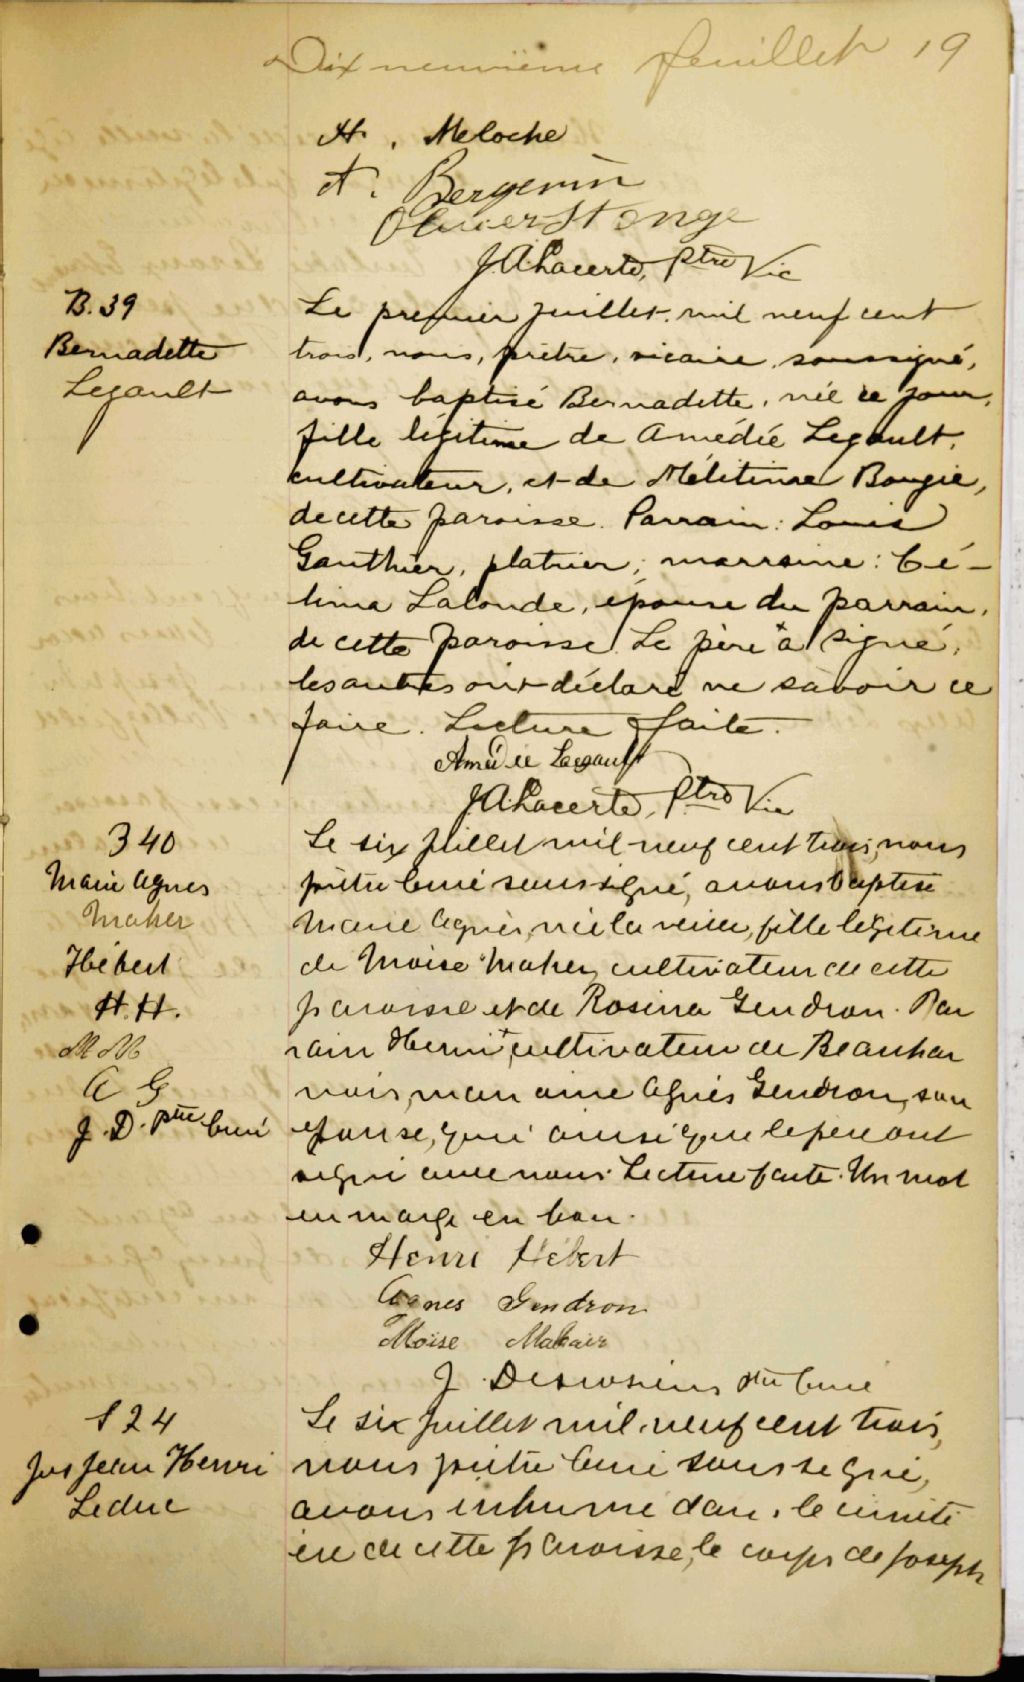 Dix neuvième feuillet 19
H. Meloche
A. Bergevin
Olivier St Onge
J.A. Lacerte, Ptre Vic
B. 39
Bernadette
Legault
Le premier juillet, mil neuf cent
trois, nous, prêtre, vicaire soussigné,
avons baptisé Bernadette, née ce jour,
fille légitime de Amédée Legault,
cultivateur, et de Mélitime Bougie,
de cette paroisse. Parrain: Louis
Gauthier, platrier; marraine: Cé-
lima Lalonde, épouse du parrain,
de cette paroisse Le père a signé,
les autres ont déclaré ne savoir ce
faire. Lecture faite.
Amédée Legault
J.A. Lacerte, Ptre Vic
B 40
Marie Agnes
Maher
Hébert
H.H.
M M
A G
J. D. ptre Curé
Le six juillet mil neuf cent trois, nous
prêtre Curé soussigné, avons baptisé
Marie Agnès, née la veille, fille légitime
de Moïse Maher, cultivateur de cette
paroisse et de Rosina Gendron. Par
rain Henri + cultivateur de Beauhar
nois, marraine Agnès Gendron, son
épouse, qui ainsi que le père ont
signé avec nous. Lecture faite. Un mot
en marge en bon.
Henri Hébert
Agnes Gendron
Moïse Mahair
J. Desrosiers ptre Curé
S 24
Jos Jean Henri
Leduc
Le six juillet mil neuf cent trois,
nous prêtre Curé soussigné,
avons inhumé dans le cimeti
ère de cette paroisse, le corps de Joseph